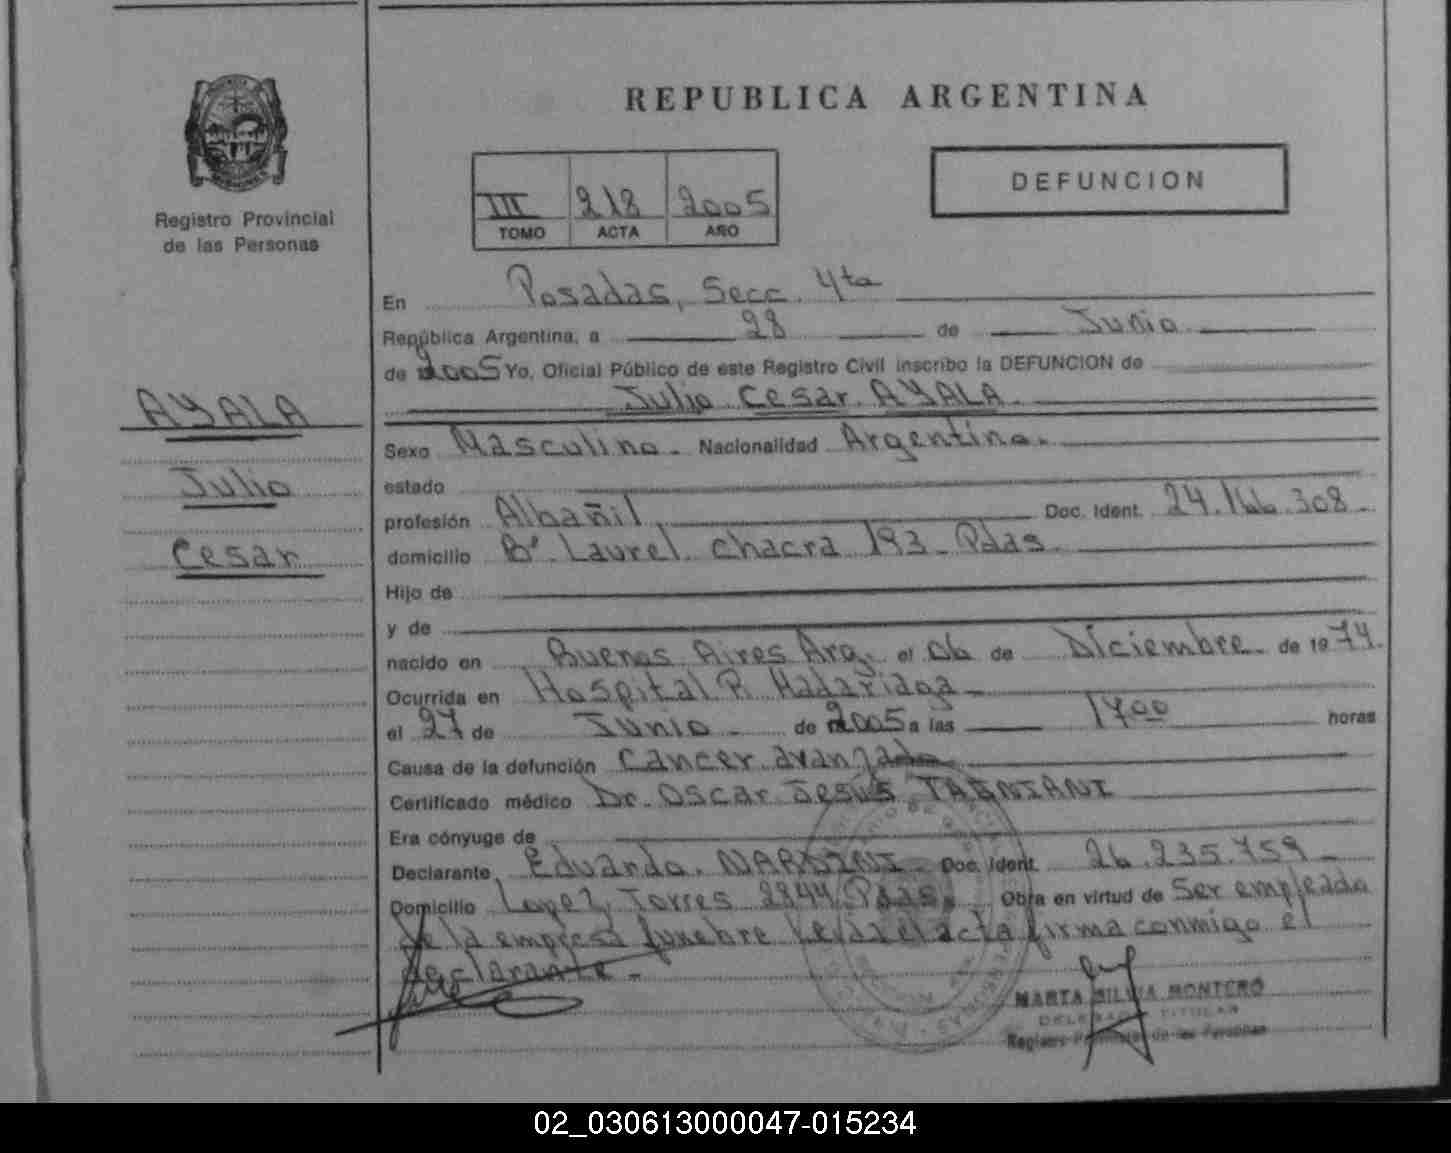 REPUBLICA ARGENTINA
Registro Provincial
de las Personas
III 218 2005
TOMO ACTA AÑO
DEFUNCION
AYALA
Julio
Cesar
En Posadas, Secc. 4ta
República Argentina, a 28 de Junio
de 2005 Yo, Oficial Público de este Registro Civil inscribo la DEFUNCION de
Julio Cesar AYALA
Sexo Masculino. Nacionalidad Argentino.
estado
profesión Albañil Doc. Ident. 24.166.308
domicilio Bº Laurel chacra 193 - Pdas
Hijo de
y de
nacido en Buenos Aires Arg. el 06 de Diciembre de 1974.
Ocurrida en Hospital R. Madariaga
el 27 de Junio de 2005 a las 1700 horas
Causa de la defunción Cancer avanzado
Certificado médico Dr. Oscar Jesus
Era cónyuge de
Declarante Eduardo NARDINI Doc. Ident. 26.235.759
Domicilio Lopez Torres 2844 Pdas. Obra en virtud de Ser empleado
de la empresa funebre Leida el acta firma conmigo el
declarante -
MARTA SILVIA MONTERO
DELEGADA TITULAR
Registro Provincial de las Personas
02_030613000047-015234